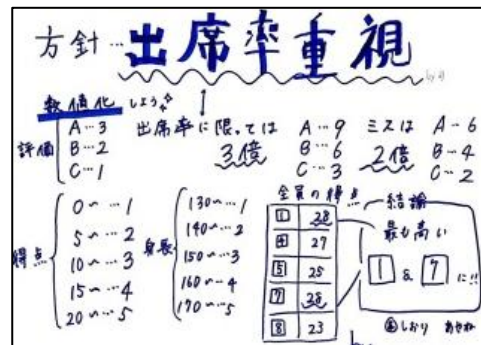 方針… 出席率重視
数値化 しよう
評価 A…3 B…2 C…1
出席率に限っては 3倍 A…9 B…6 C…3
ミスは 2倍 A…6 B…4 C…2
得点 0〜…1 5〜…2 10〜…3 15〜…4 20〜…5
身長 130〜…1 140〜…2 150〜…3 160〜…4 170〜…5
全員の得点
1 28
4 27
5 25
7 28
8 23
結論
最も高い
1 & 7 に!!
しおり あやね